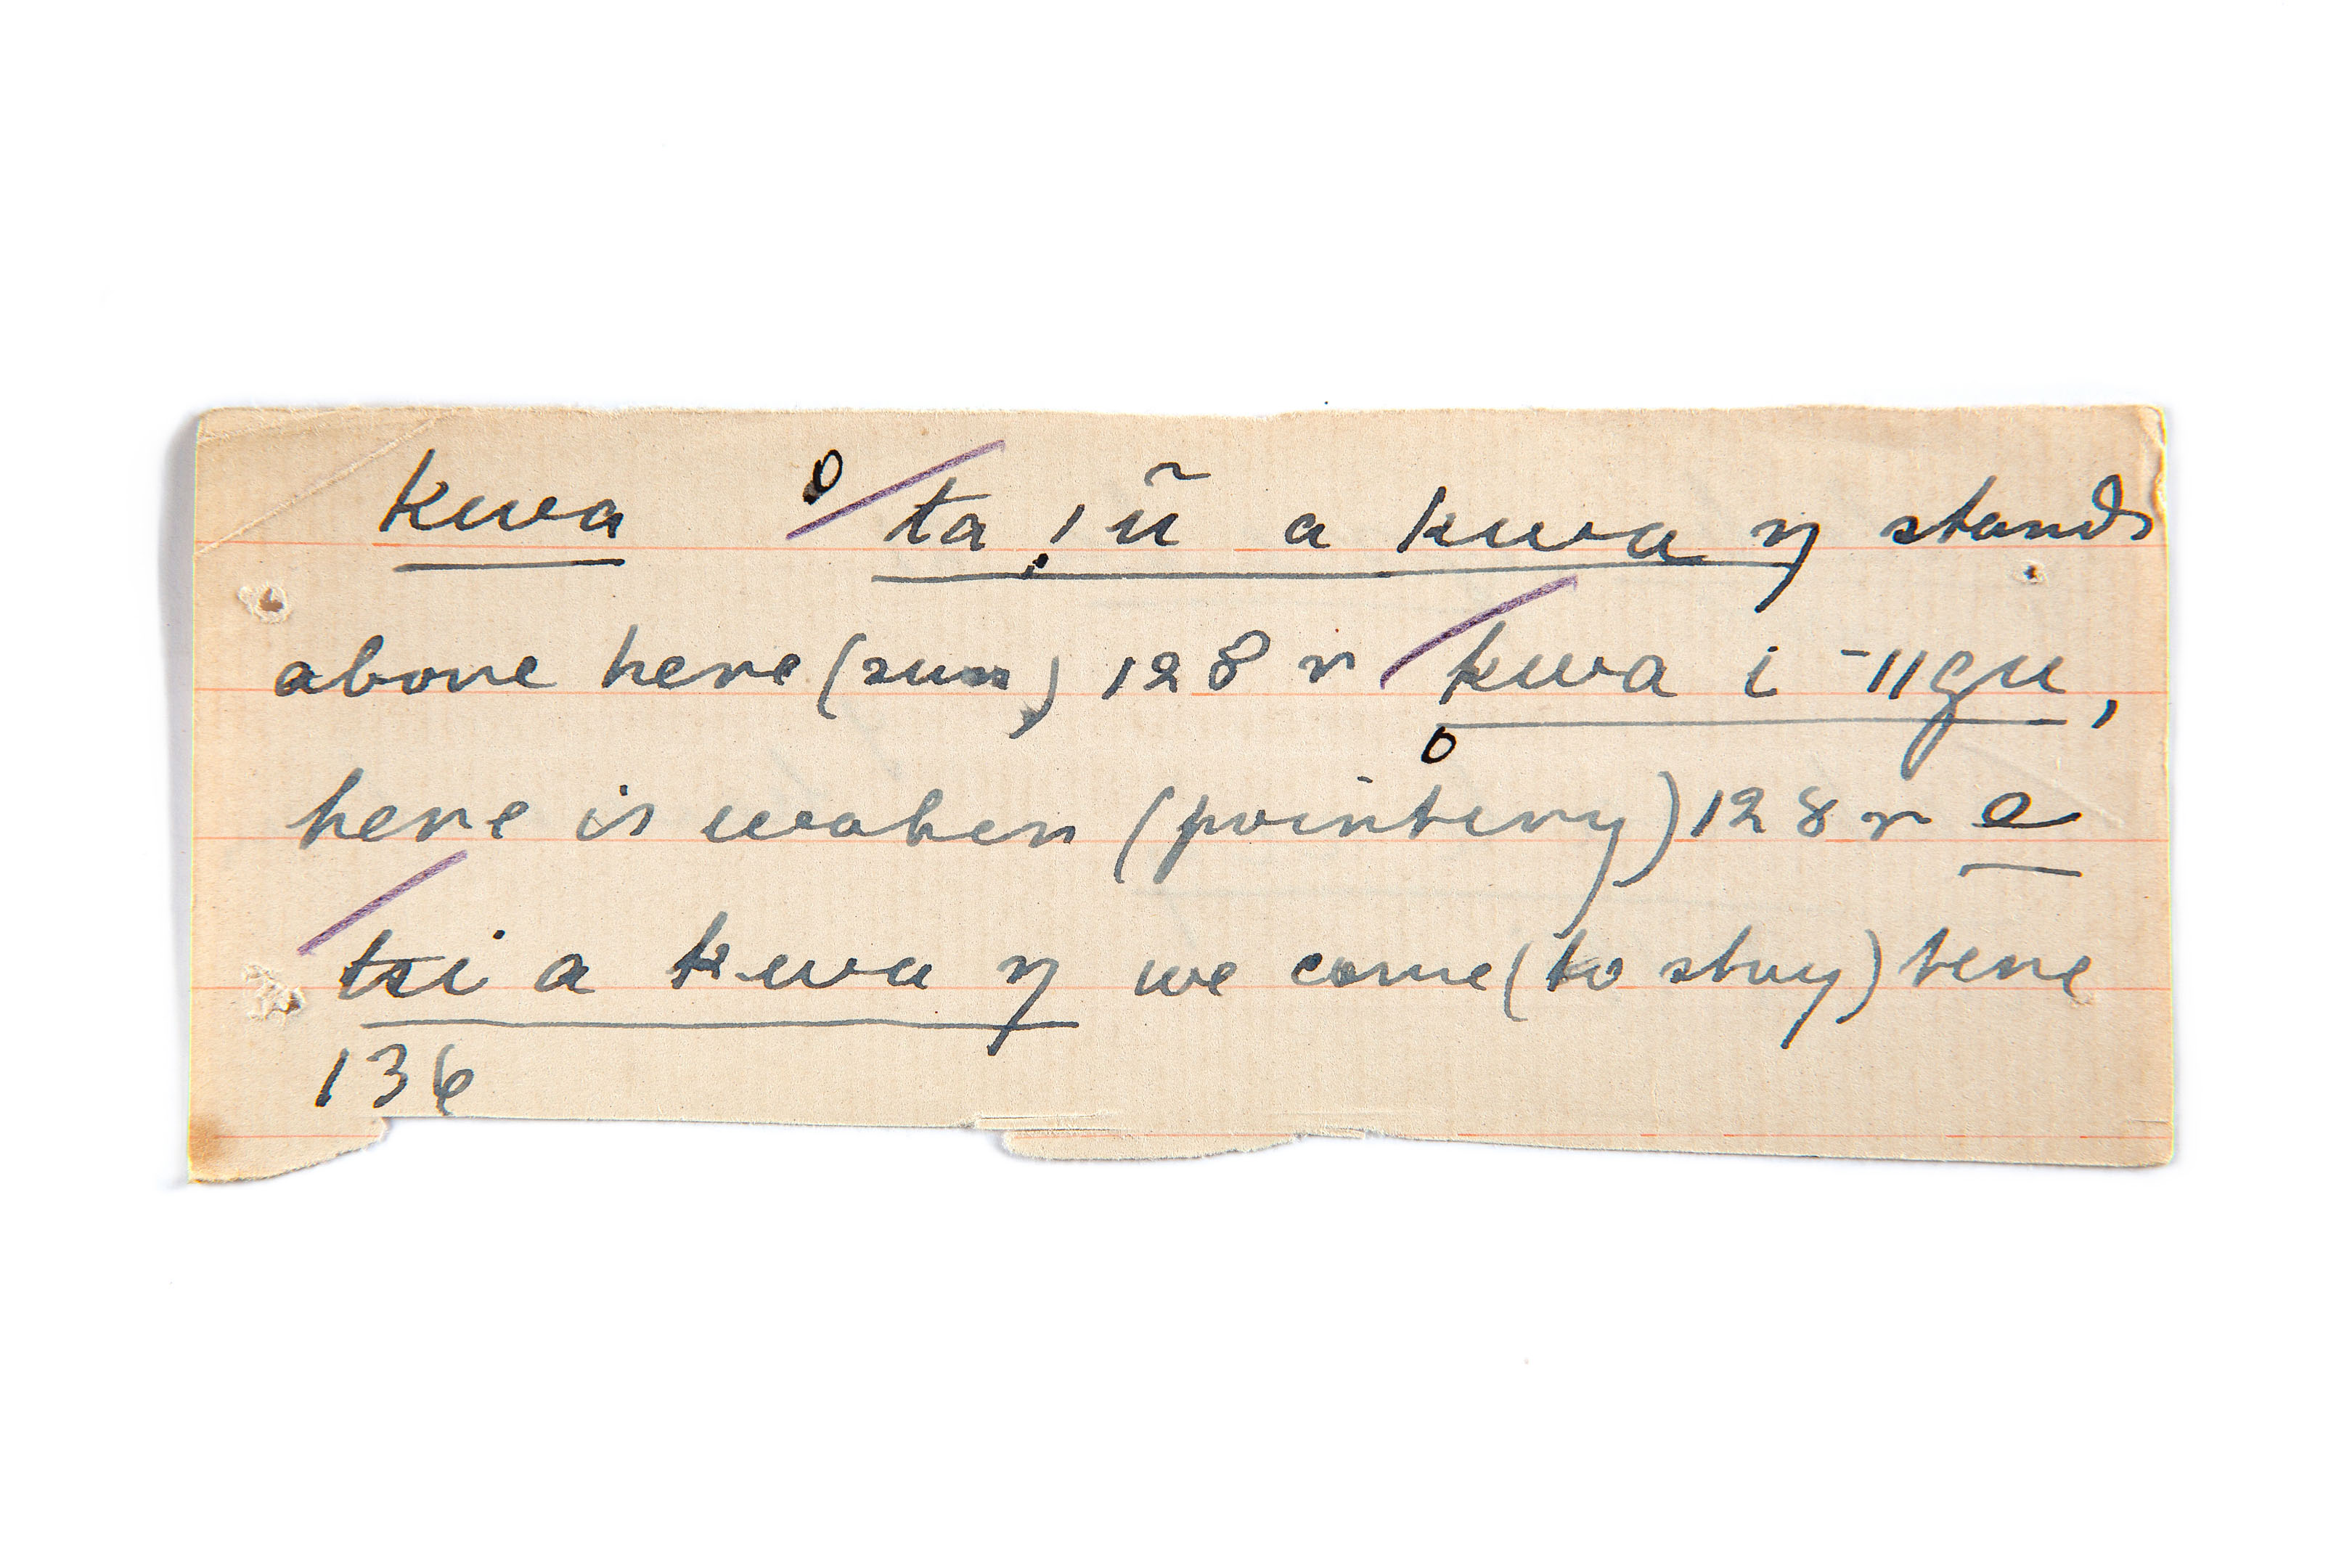 kwa o ta !ũ a kwa ŋ stands
above here (sun) 128 r kwa i -ǁgu,
o
here is water (pointing) 128 r e
tsi a kwa ŋ we come (to stay) here
136